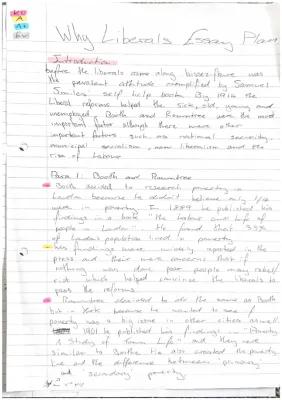 KU
A
A+
EV
Why Liberals Essay Plan
Introduction
Before the liberals came along laissez-faire was
the prevalent attitude exemplified by Samuel
Smiles' self help book. By 1914 the
liberal reforms helped the sick, old, young and
unemployed. Booth and Rowntree were the most
important factor although there were other
important factors such as national security,
municipal socialism, new liberalism and the
rise of Labour.
Para 1: Booth and Rowntree
Booth decided to research poverty in
London because he didn't believe that 1/4
were in poverty. In 1889 he published his
findings in a book "The Labour and life of
people in London". He found that 35%
of London's population lived in poverty.
His findings were widely reported in the
press and their were concerns that if
nothing was done poor people may rebel/
riot which helped convince the liberals to
pass the reforms.
Rowntree decided to do the same as Booth
but in York because he wanted to see if
poverty was a big issue in other cities as well.
1901 he published his findings in "Poverty
A Study of Town Life" and they were
similar to Booths. He also created the poverty
line and the difference between 'primary'
and 'secondary' poverty.